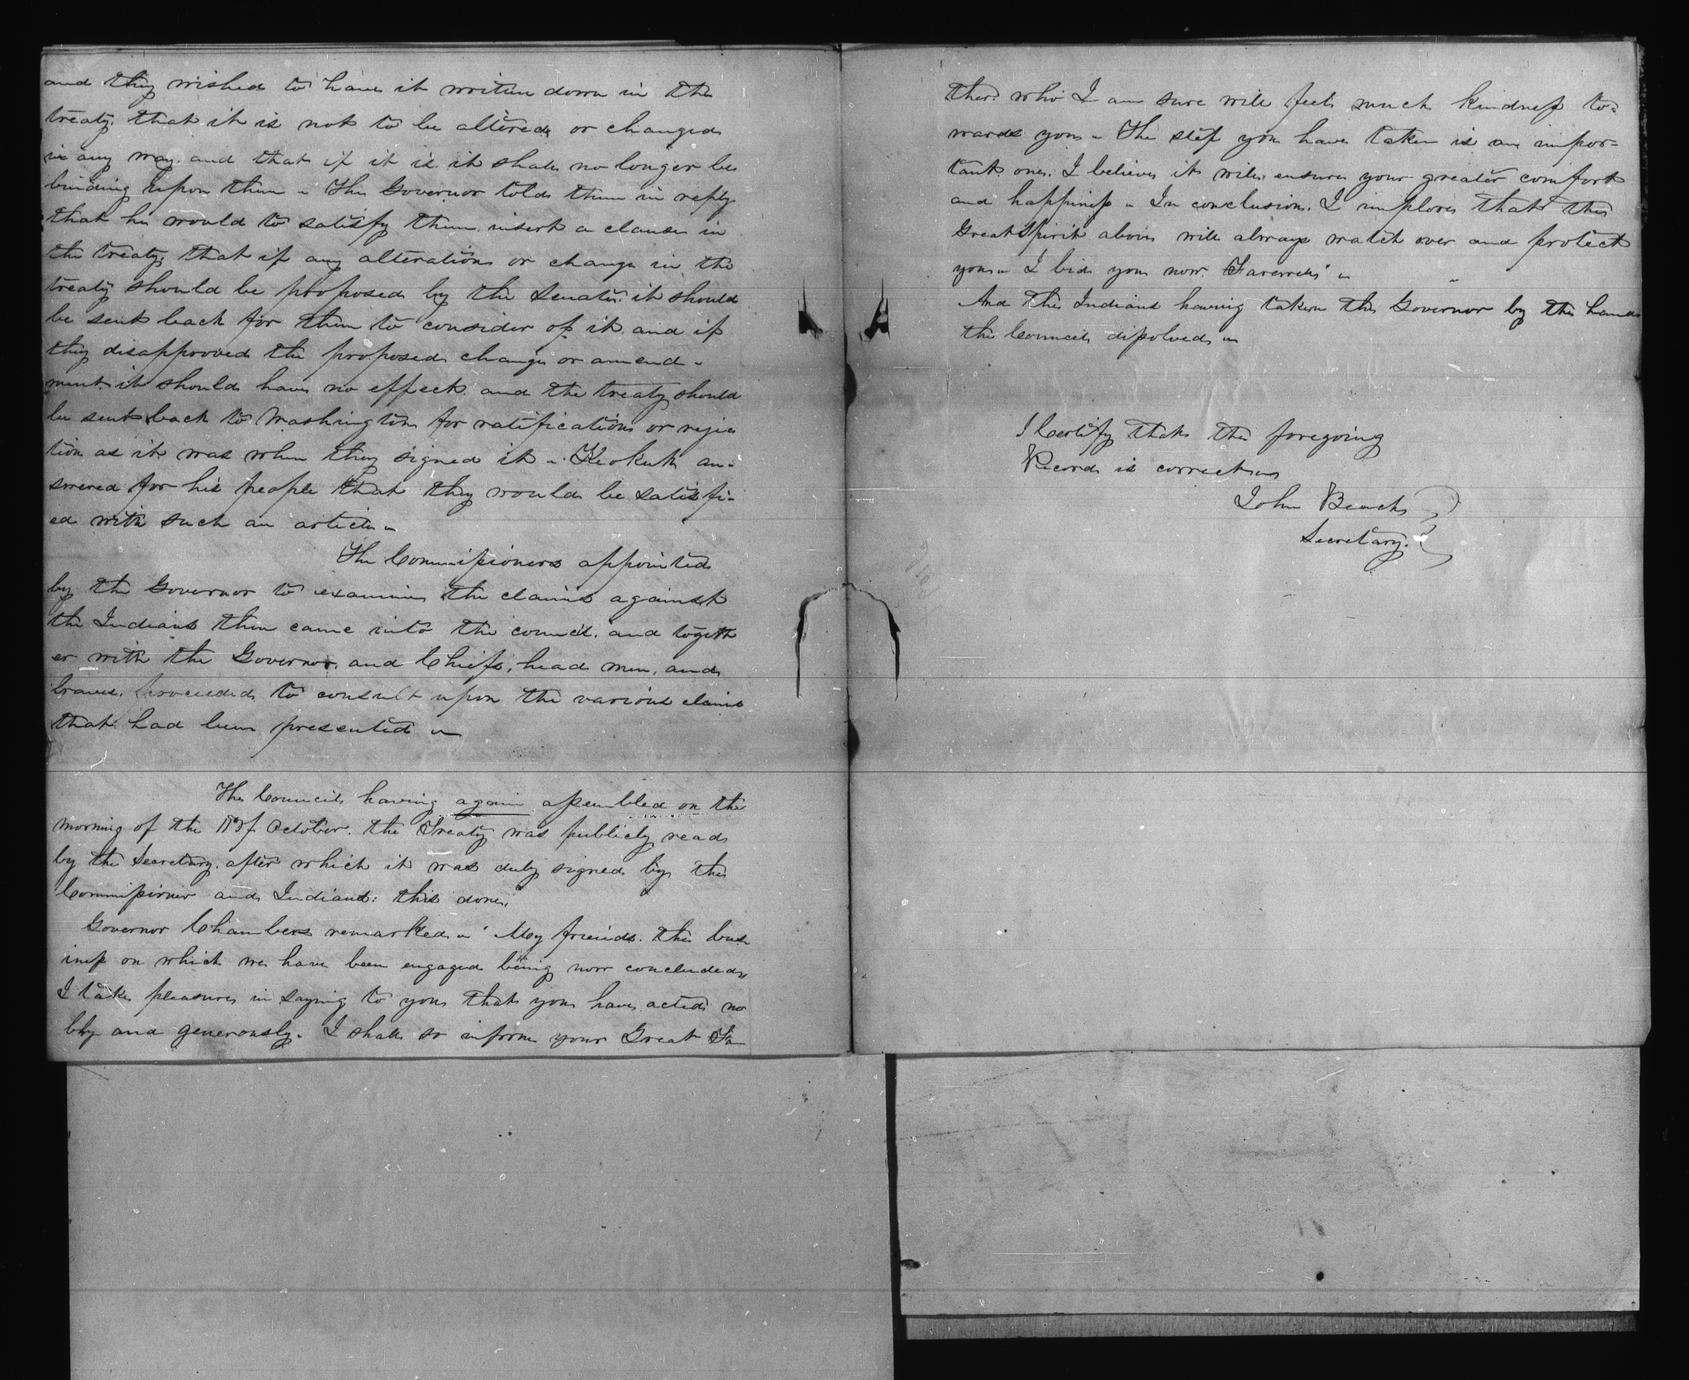 and they wished to have it written down in the
treaty, that it is not to be altered or changed
in any way, and that if it is, it shall no longer be
binding upon them – The Governor told them in reply
that he would to satisfy them, insert a clause in
the treaty, that if any alterations or change in the
treaty should be proposed by the Senate, it should
be sent back for them to consider of it and if
they disapproved the proposed change or amend-
ment, it should have no effect, and the treaty should
be sent back to Washington for ratification or rejec
tion as it was when they signed it – Keokuk an-
swered for his people that they would be satisfi-
ed with such an article –
The Commissioners appointed
by the Governor to examine the claims against
the Indians then came into the council, and togeth
er with the Governor, and Chiefs, head men, and
braves, proceeded to consult upon the various claims
that had been presented –
The Council having again assembled on the
morning of the of October, the Treaty was publicly read
by the Secretary, after which it was duly signed by the
Commissioner and Indians: this done,
Governor Chambers remarked – "My friends, the bus
iness on which we have been engaged being now concluded,
I take pleasure in saying to you that you have acted no
bly and generously. I shall so inform your Great Fa
ther, who I am sure will feel much kindness to=
wards you – The step you have taken is an impor=
tant one. I believe it will ensure your greater comfort
and happiness – In conclusion, I implore that the
Great Spirit above will always watch over and protect
you – I bid you now Farewell" –
And the Indians having taken the Governor by the hand
the Council dissolved –
I Certify that the foregoing
Record is correct –
John Beach
Secretary.